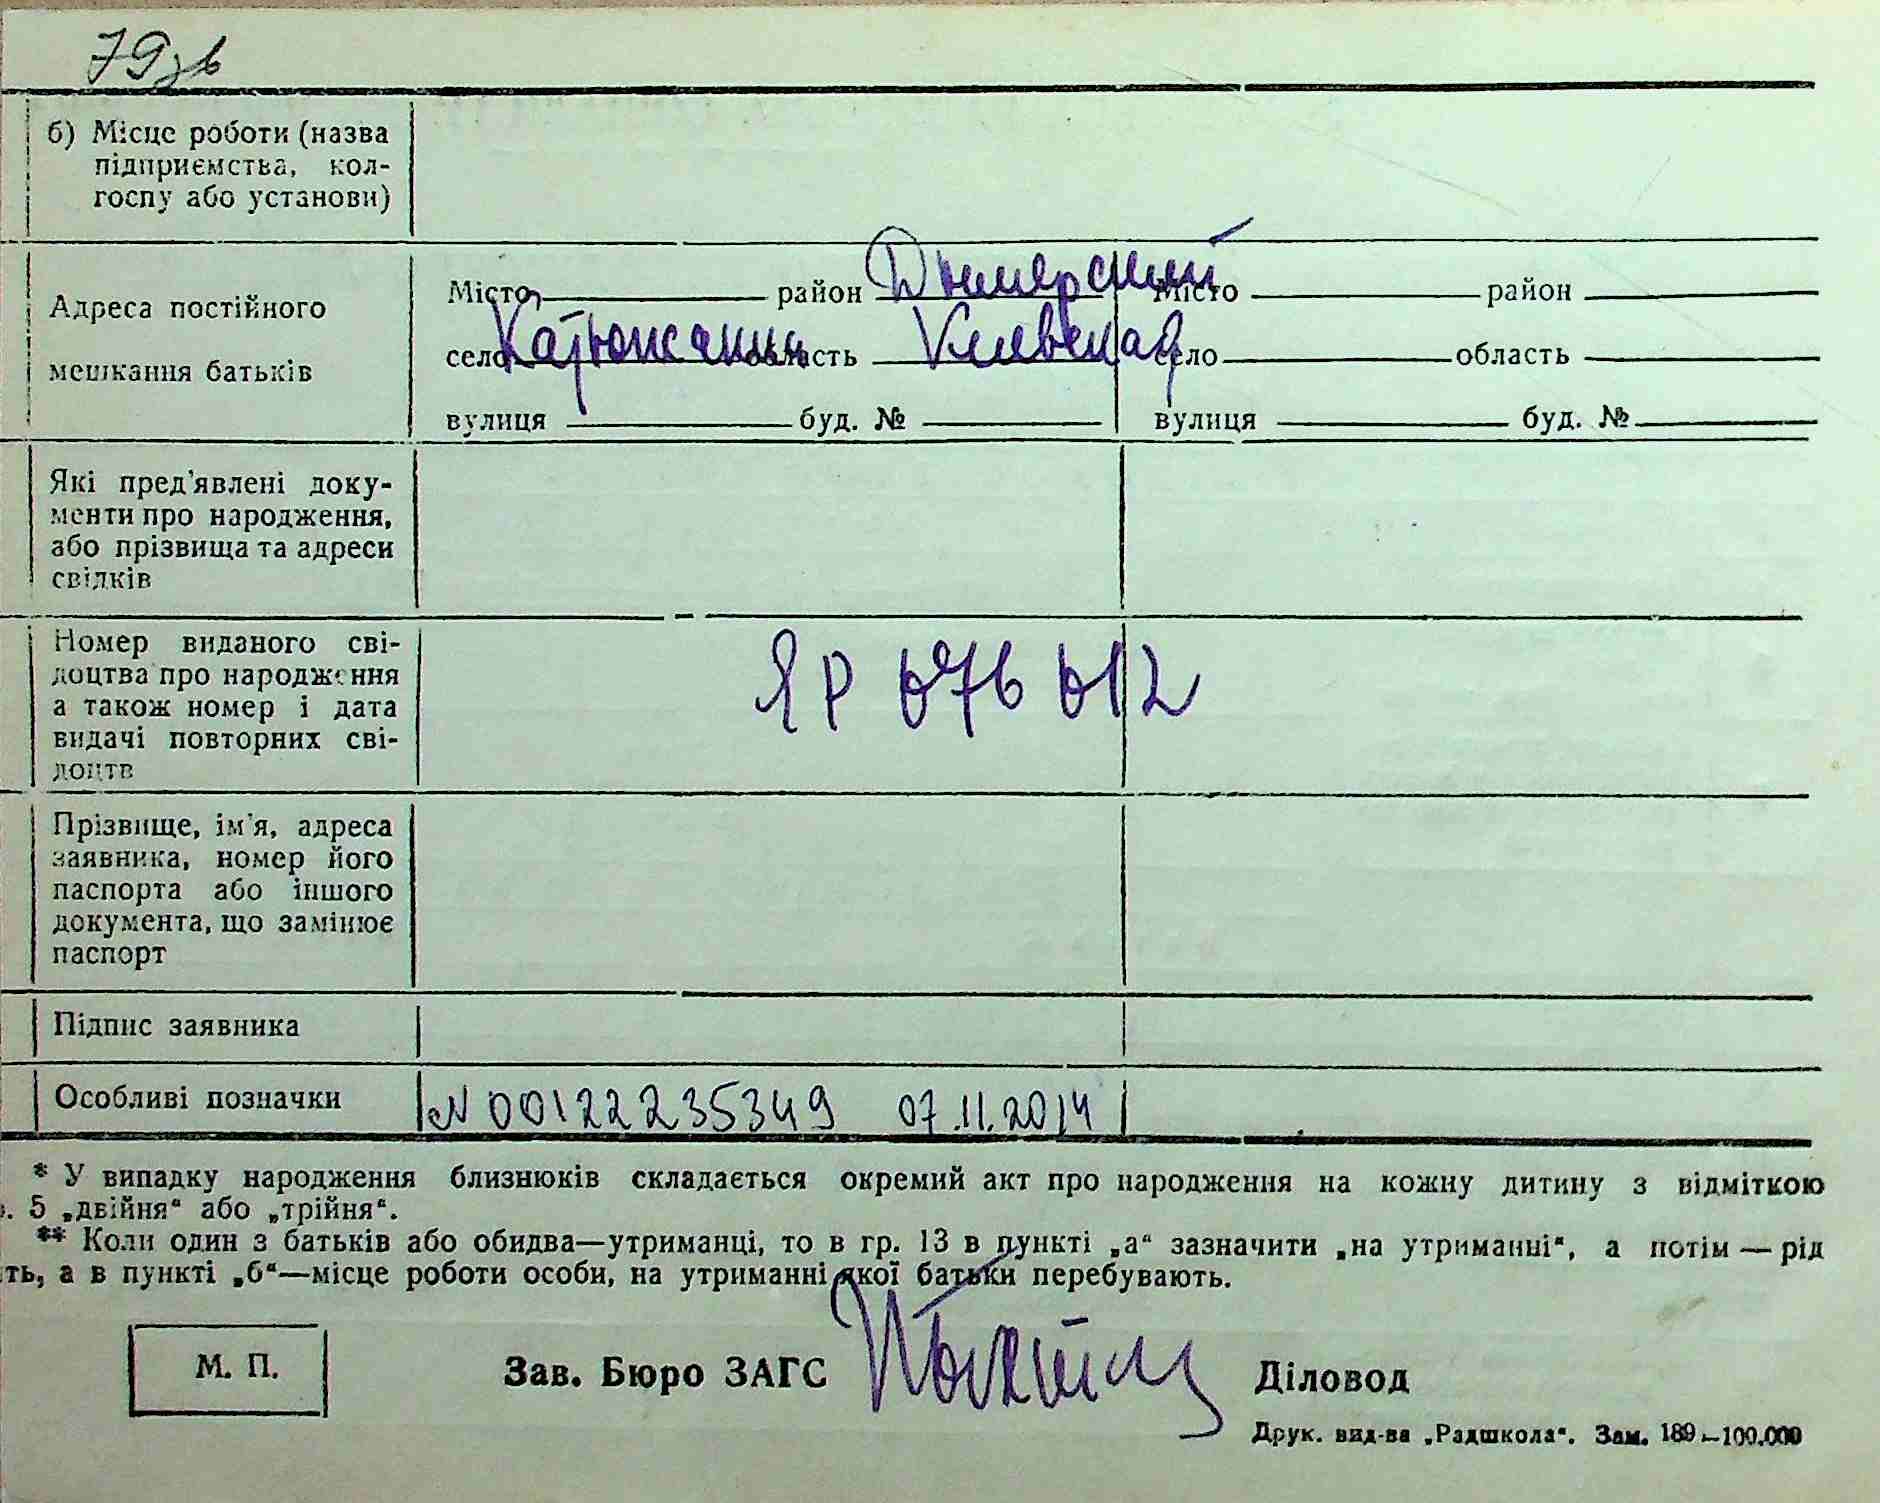 79зв
б) Місце роботи (назва
підприємства, кол-
госпу або установи)
Адреса постійного
мешкання батьків
Місто район Дымерский
село Катюжанка область Киевская
вулиця буд. №
Місто район
село область
вулиця буд. №
Які пред'явлені доку-
менти про народження,
або прізвища та адреси
свідків
Номер виданого сві-
доцтва про народження
а також номер і дата
видачі повторних сві-
доцтв
ЯР 076 012
Прізвище, ім'я, адреса
заявника, номер його
паспорта або іншого
документа, що замінює
паспорт
Підпис заявника
Особливі позначки
N 00122235349 07.11.2014
* У випадку народження близнюків складається окремий акт про народження на кожну дитину з відміткою
. 5 „двійня“ або „трійня“.
** Коли один з батьків або обидва—утриманці, то в гр. 13 в пункті „а“ зазначити „на утриманні“, а потім — рід
ть, а в пункті „б“—місце роботи особи, на утриманні якої батьки перебувають.
М. П.
Зав. Бюро ЗАГС
Діловод
Друк. вид-ва „Радшкола“. Зам. 189—100.000